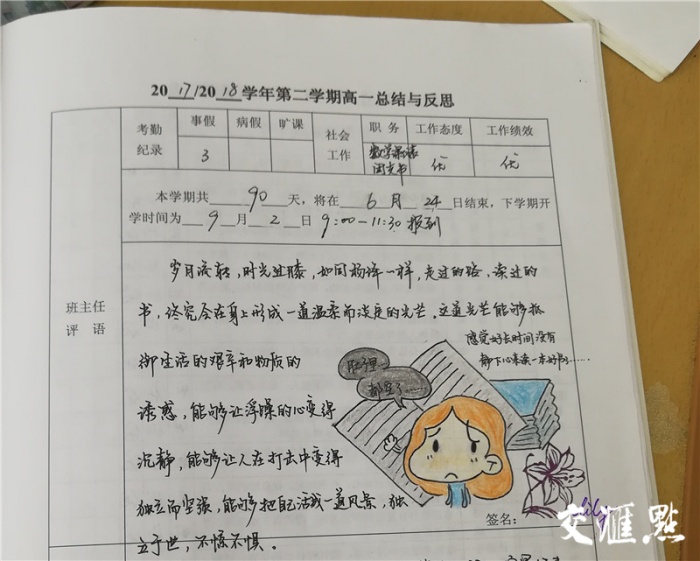 2017/2018学年第二学期高一总结与反思
考勤纪录 事假 病假 旷课 社会工作 职务 工作态度 工作绩效
3 数学课代 团支书 优 优
本学期共 90 天,将在 6 月 24 日结束,下学期开
学时间为 9 月 2 日 9:00-11:30 报到
班主任
评语
岁月流转,时光并膝,如同杨绛一样,走过的路,读过的
书,终究会在身上形成一道温柔而淡定的光芒。这道光芒能够抵
御生活的艰辛和物质的
诱惑,能够让浮躁的心变得
沉静,能够让人在打击中变得
独立而坚强,能够把自己活成一道风景,独
立于世,不惊不惧。
感觉好长时间没有
静下心来读一本好书……
肚子里
都空了……
签名:
lily
交汇点